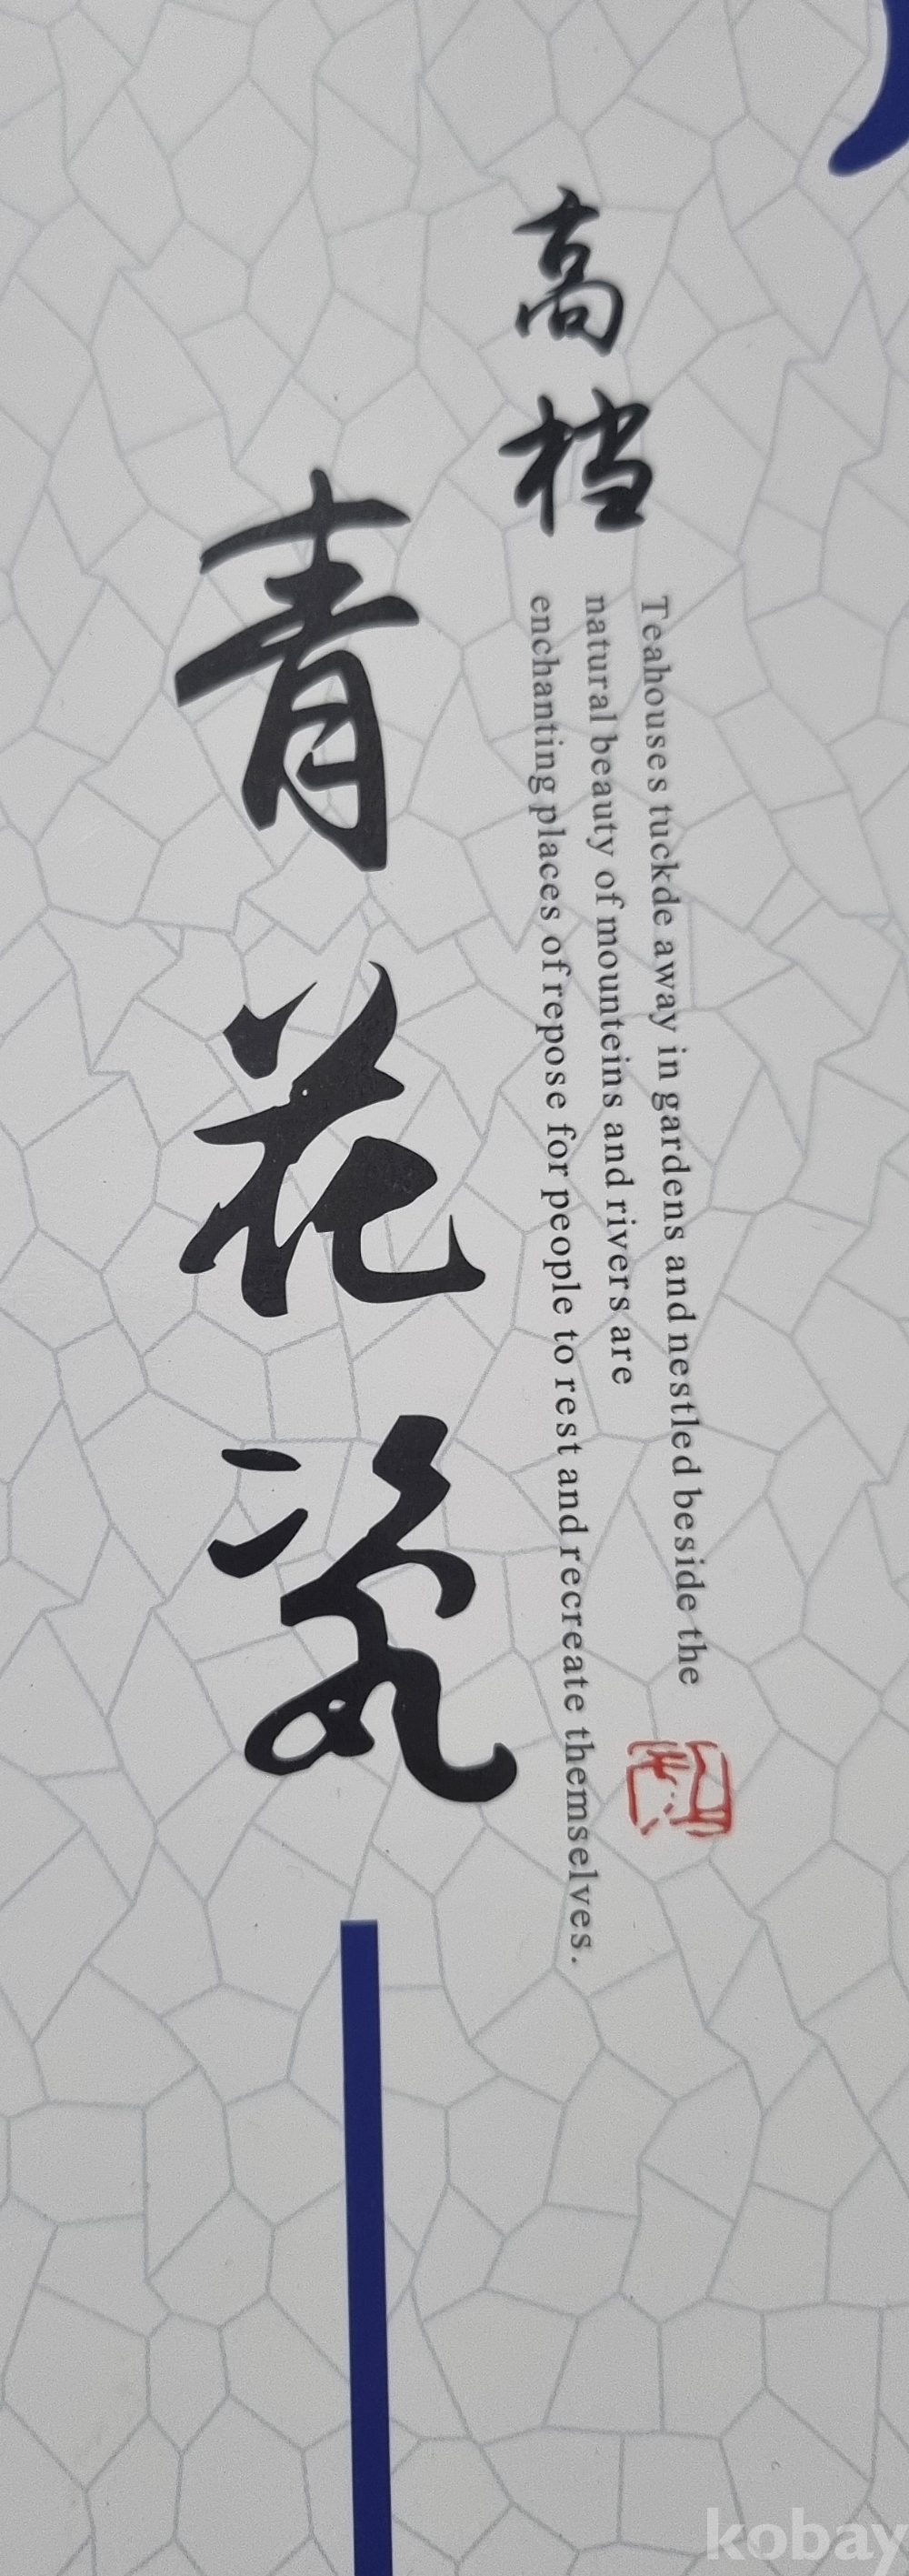 高档
Teahouses tuckde away in gardens and nestled beside the
natural beauty of mounteins and rivers are
enchanting places of repose for people to rest and recreate themselves.
青花瓷
kobay